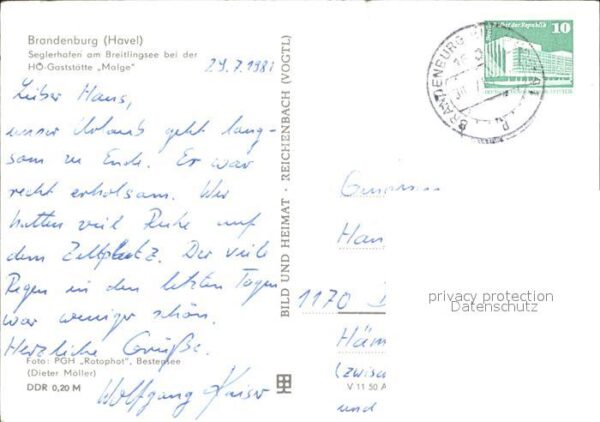 Brandenburg (Havel)
Seglerhafen am Breitlingsee bei der
HO-Gaststätte „Malge"
29.7.1981
Lieber Hans,
unser Urlaub geht lang-
sam zu Ende. Es war
recht erholsam. Wir
hatten viel Ruhe auf
dem Zeltplatz. Der viele
Regen in den letzten Tagen
war weniger schön.
Herzliche Grüße.
Wolfgang Kaiser
Foto: PGH „Rotophot", Bestensee
(Dieter Möller)
DDR 0,20 M
BILD UND HEIMAT · REICHENBACH (VOGTL)
V 11 50 A
10
BRANDENBURG
Han
1170
privacy protection
Datenschutz
Häm
(zwisc
und